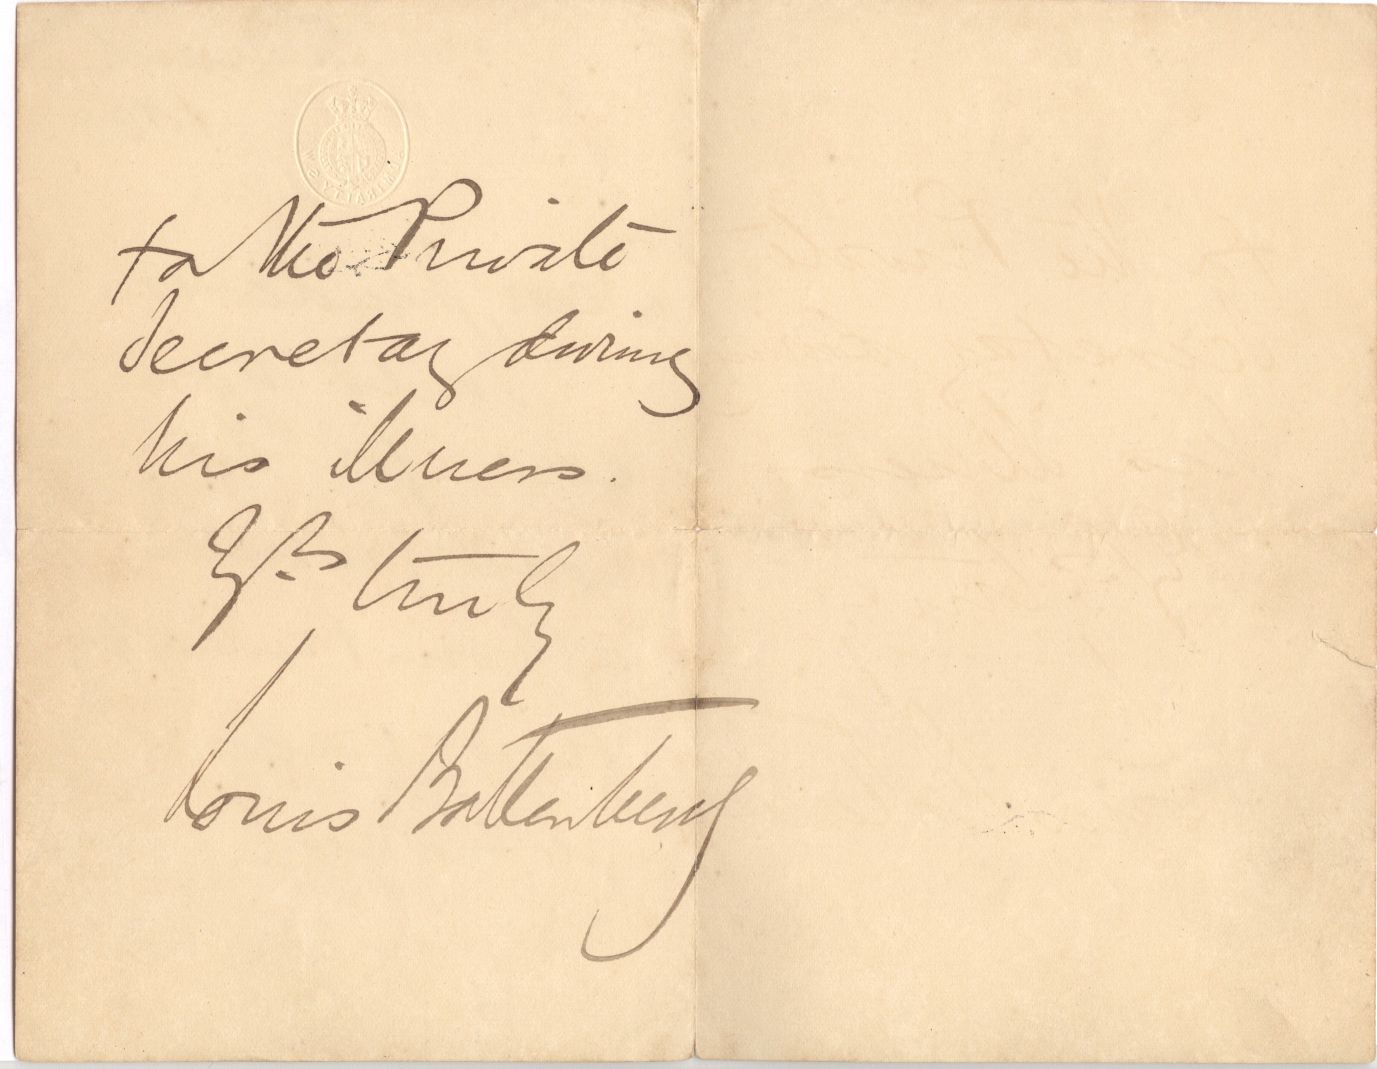 to the Private
Secretary during
his illness.
Yrs truly
Louis Battenberg